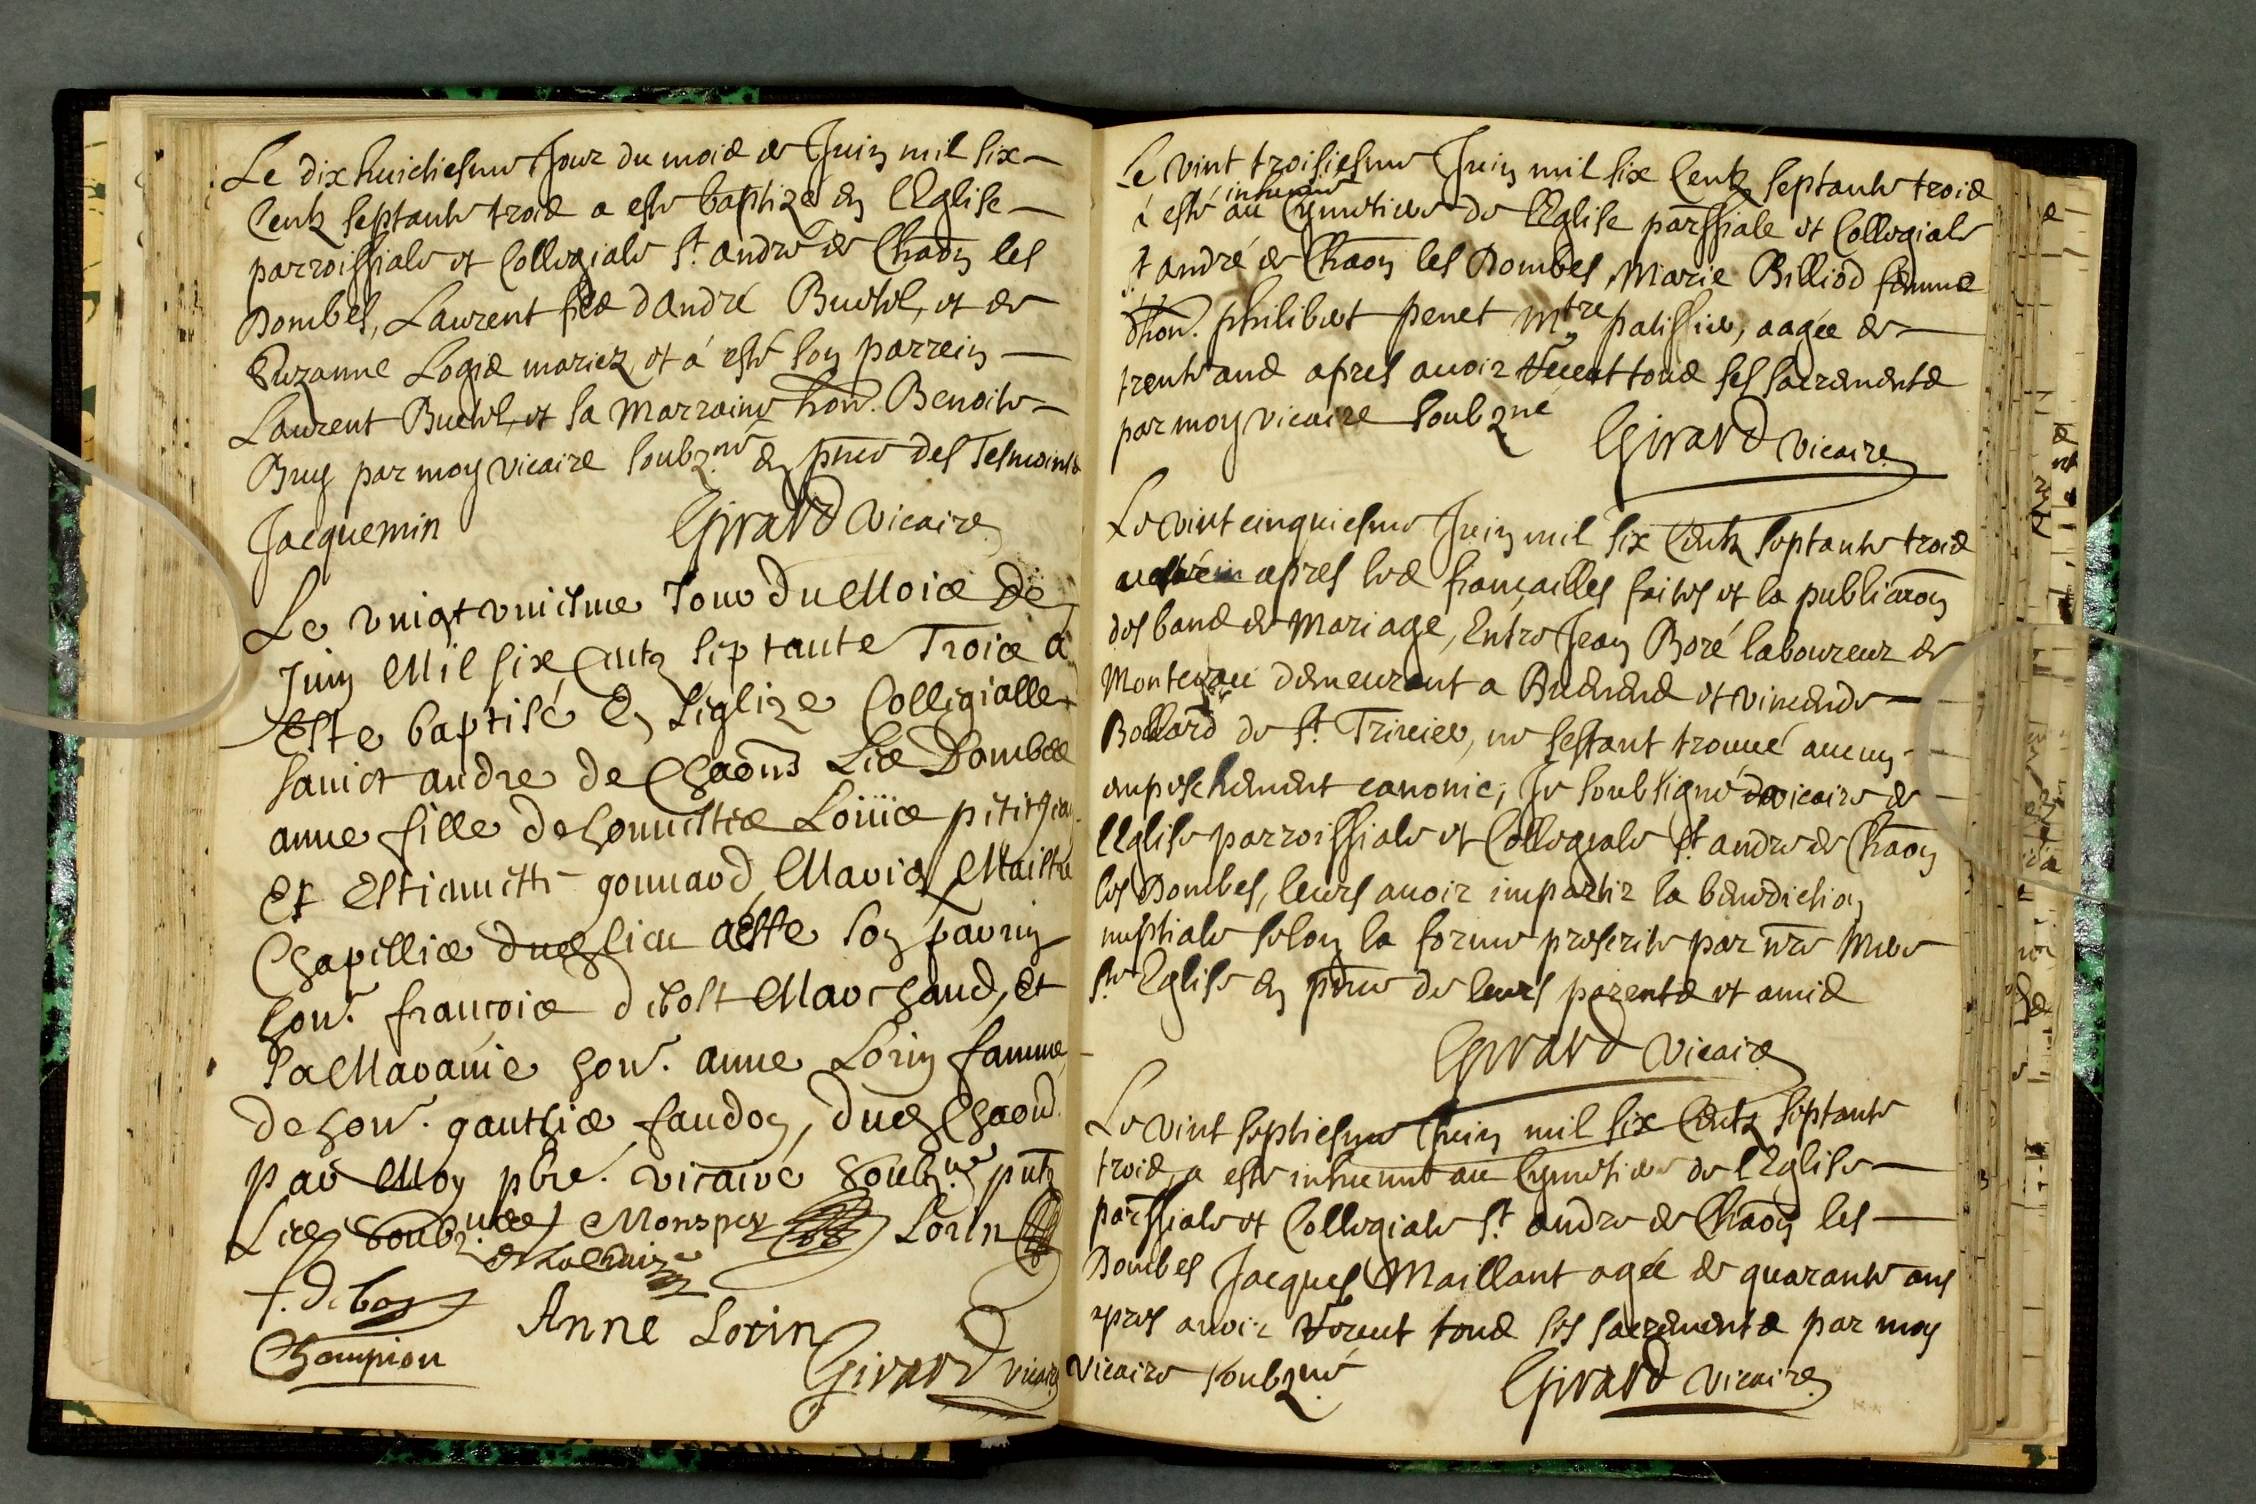 Le dix huictiesme Jour du mois de Juin mil six
Centz septante trois a este baptizé en l'Eglise
parroissiale et Collegiale St. andre de Chaon les
Dombes, Laurent filz d'andré Buchel, et de
Suzanne Logie mariez, et á esté son parrein
Laurent Buchel, et sa Marraine hon. Benoite
Bruy par moy vicaire soubz.né en pnce des Tesmoins
Jacquemin Girard vicaire
Le vnigt vniesme Jour du Mois de
Juin Mil six Centz septante Trois a
Este baptisé En L'eglize Collegialle
sainct andre de Chaons Les Dombes
anne fille de honnestes Loüis petitjean
Et Estiennette gonnard Mariez Maistre
Chapellier dud lieu a este son parrin
hon. francois debost Marchand, et
sa Maranie hon. anne Lorin famme
de hon. gauthier faudon, dud Chaon
par Moy pbre. vicaire soubz.né pntz
Les soubz.nés Monspey Lorin
f. debost
Champion Anne Lorin
Girard vicaire
Le vint troisiesme Juin mil six Centz septante trois
inhumé
à esté au Cymetiere de l'Eglise parssiale et Collegiale
St andré de Chaon les Dombes, Marie Billiod femme
d'hon. philibert penet Mtre patissier, aagée de
trente ans apres auoir Receut tous ses sacrements
par moy vicaire soubzné Girard vicaire
Le vint cinquiesme Juin mil six Centz septante trois
apres les fiançailles faites et la publiaon
des bans de Mariage, Entre Jean Boré laboureur de
demeurant a et vincende
Bollard de St. Triuier, ne sestant trouué aucun
empeschement canonic, Je soubsigné vicaire de
l'Eglise parroissiale et Collegiale St. andre de Chaon
les Dombes, leurs auoir impartir la benediction
nuptiale selon la forme prescrite par nre Mere
Ste Eglise en pnce de leurs parents et amis
Girard vicaire
Le vint septiesme Juin mil six Centz septante
trois, a este inhumé au Cymetiere de l'Eglise
parssiale et Collegiale St. andre de Chaon les
Dombes Jacques Maillant agée de quarante ans
apres auoir Receut tous ses sacrements par moy
vicaire soubzné Girard vicaire